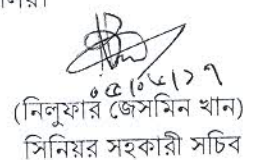 ০৫/০৫/১৭
(নিলুফার জেসমিন খান)
সিনিয়র সহকারী সচিব